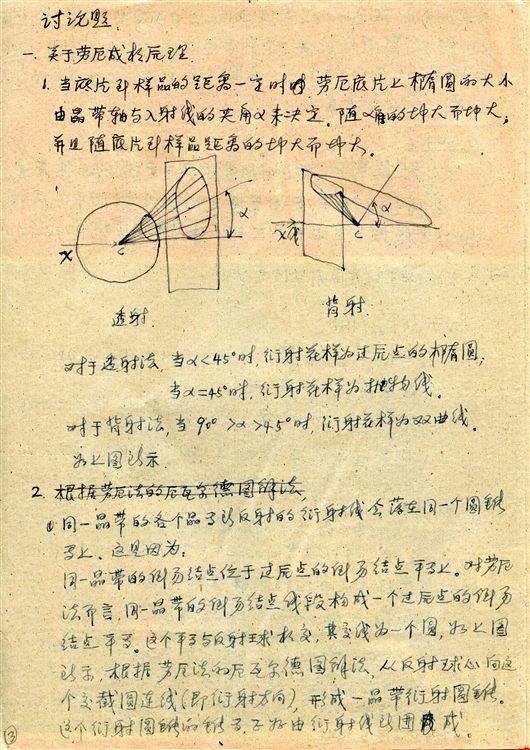 讨论题
一. 关于劳厄成相原理
1. 当底片到样品的距离一定时 劳厄底片上椭圆的大小
由晶带轴与入射线的夹角α来决定. 随α角的增大而增大,
并且随底片到样品距离的增大而增大。
α
X
C
α
X线
C
透射
背射.
对于透射法, 当α<45°时, 衍射花样为过原点的椭圆,
当α=45°时, 衍射花样为抛物线.
对于背射法, 当 90°>α>45°时, 衍射花样为双曲线.
如上图所示.
2. 根据劳厄法的厄瓦尔德图解法
① 同一晶带的各个晶面所反射的衍射线会落在同一个圆锥
面上. 这是因为:
同一晶带的倒易结点位于过原点的倒易结点平面上. 对劳厄
法而言, 同一晶带的倒易结点线段构成一个过原点的倒易
结点平面. 这个平面与反射球相交, 其交线为一个圆, 如上图
所示, 根据劳厄法的厄瓦尔德图解法, 从反射球心向这
个交截圆连线(即衍射方向), 形成一晶带衍射圆锥.
这个衍射圆锥的锥面, 正好由衍射线所围成.
③